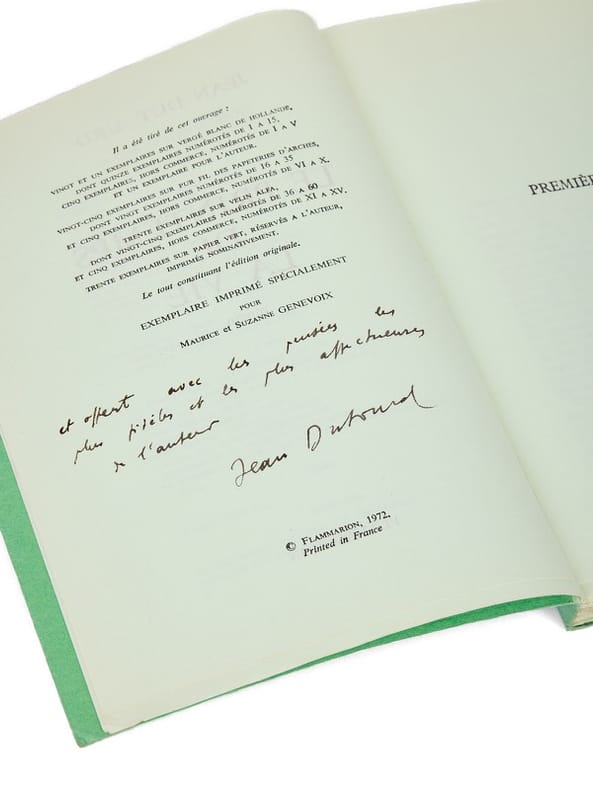 Il a été tiré de cet ouvrage :
VINGT ET UN EXEMPLAIRES SUR VERGÉ BLANC DE HOLLANDE,
DONT QUINZE EXEMPLAIRES NUMÉROTÉS DE 1 A 15,
CINQ EXEMPLAIRES, HORS COMMERCE, NUMÉROTÉS DE I A V
ET UN EXEMPLAIRE POUR L'AUTEUR.
VINGT-CINQ EXEMPLAIRES SUR PUR FIL DES PAPETERIES D'ARCHES,
DONT VINGT EXEMPLAIRES NUMÉROTÉS DE 16 A 35
ET CINQ EXEMPLAIRES, HORS COMMERCE, NUMÉROTÉS DE VI A X.
TRENTE EXEMPLAIRES SUR VELIN ALFA,
DONT VINGT-CINQ EXEMPLAIRES NUMÉROTÉS DE 36 A 60
ET CINQ EXEMPLAIRES, HORS COMMERCE, NUMÉROTÉS DE XI A XV.
TRENTE EXEMPLAIRES SUR PAPIER VERT, RÉSERVÉS A L'AUTEUR,
IMPRIMÉS NOMINATIVEMENT.
Le tout constituant l'édition originale.
EXEMPLAIRE IMPRIMÉ SPÉCIALEMENT
POUR
MAURICE et SUZANNE GENEVOIX
et offert avec les pensées les
plus fidèles et les plus affectueuses
de l'auteur
Jean Dutourd
© FLAMMARION, 1972.
Printed in France
PREMIÈR